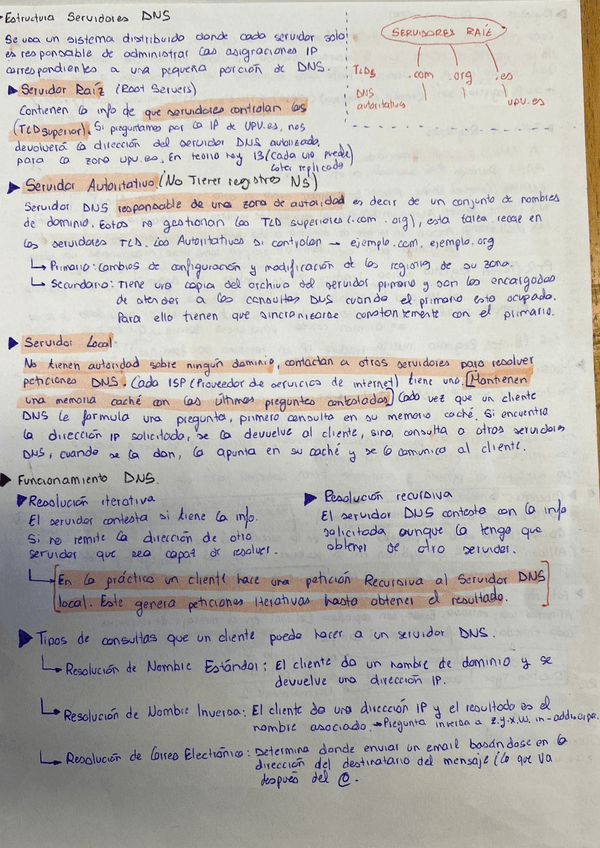 Estructura Servidores DNS
Se usa un sistema distribuido donde cada servidor solo
es responsable de administrar las asignaciones IP
correspondientes a una pequeña porción de DNS.
SERVIDORES RAÍZ
TLDs .com .org .es
DNS
autoritativos upv.es
Servidor Raíz (Root Servers)
Contienen la info de que servidores controlan los
(TLD superior). Si preguntamos por la IP de UPV.es, nos
devolverá la dirección del servidor DNS autorizado,
para la zona upv.es. En teoría hay 13 (cada uno puede
estar replicado)
Servidor Autoritativo (No Tienen registros NS)
Servidor DNS responsable de una zona de autoridad es decir de un conjunto de nombres
de dominio. Estos no gestionan los TLD superiores (.com .org), esta tarea recae en
los servidores TLD. Los Autoritativos si controlan → ejemplo.com, ejemplo.org
Primario: Cambios de configuración y modificación de los regiones de su zona.
Secundario: Tiene una copia del archivo del servidor primario y son los encargados
de atender a las consultas DNS cuando el primario esta ocupado.
Para ello tienen que sincronizarse constantemente con el primario.
Servidor Local
No tienen autoridad sobre ningún dominio, contactan a otros servidores para resolver
peticiones DNS. Cada ISP (Proveedor de servicios de internet) tiene uno. Mantienen
una memoria caché con las últimas preguntas contestadas. Cada vez que un cliente
DNS le formula una pregunta, primero consulta en su memoria caché. Si encuentra
la dirección IP solicitada, se la devuelve al cliente, sino, consulta a otros servidores
DNS, cuando se la dan, la apunta en su caché y se lo comunica al cliente.
Funcionamiento DNS.
Resolución iterativa
El servidor contesta si tiene la info.
Si no remite la dirección de otro
servidor que sea capaz de resolver.
Resolución recursiva
El servidor DNS contesta con la info
solicitada aunque la tenga que
obtener de otro servidor.
En la práctica un cliente hace una petición Recursiva al Servidor DNS
local. Este genera peticiones Iterativas hasta obtener el resultado.
Tipos de consultas que un cliente puede hacer a un servidor DNS.
Resolución de Nombre Estándar: El cliente da un nombre de dominio y se
devuelve una dirección IP.
Resolución de Nombre Inversa: El cliente da una dirección IP y el resultado es el
nombre asociado. → Pregunta inversa a z.y.x.w. in-addr.arpa.
Resolución de Correo Electrónico: Determina donde enviar un email basándose en la
dirección del destinatario del mensaje (lo que va
después del @.